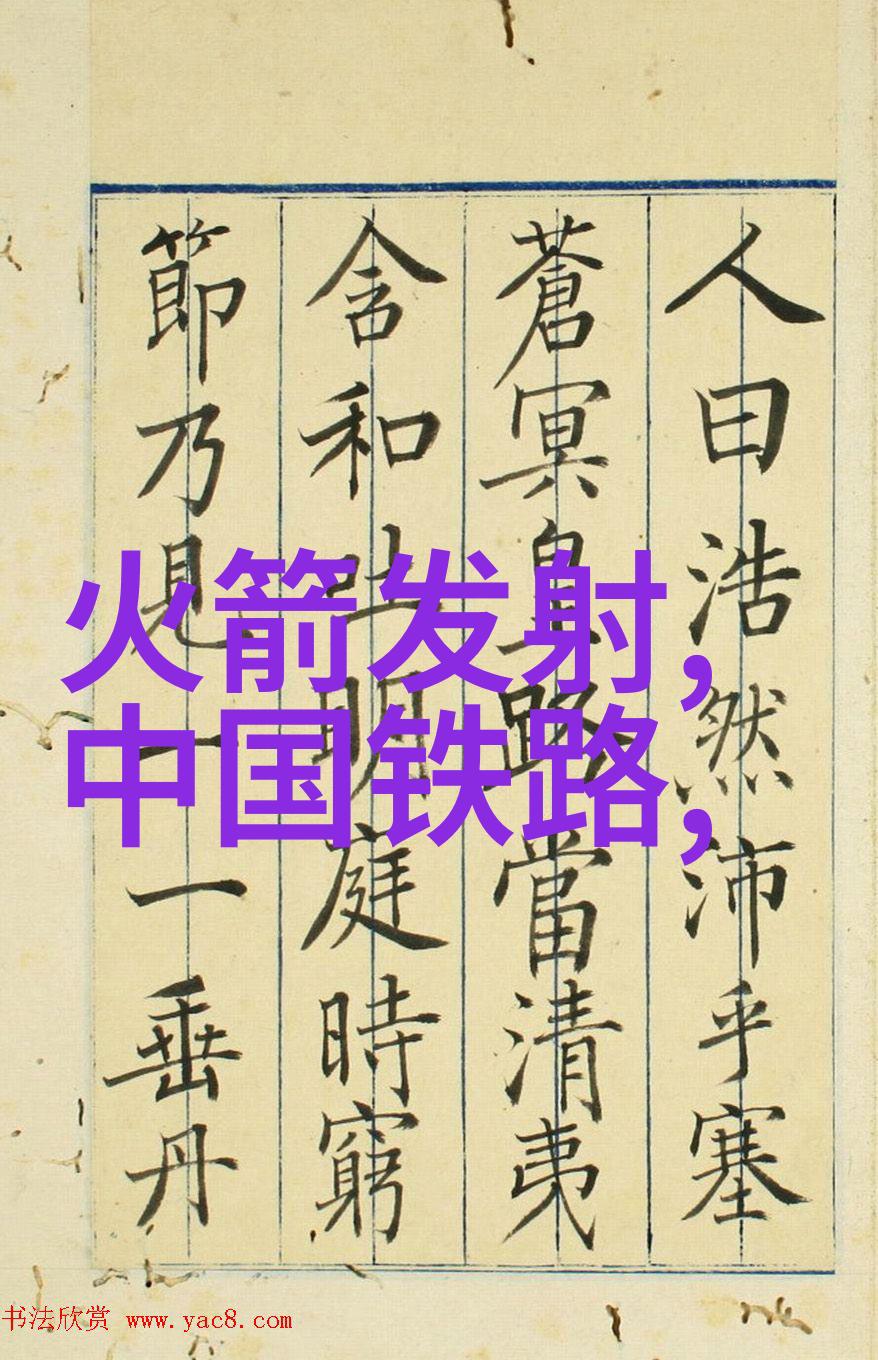 人曰浩然沛乎塞
蒼冥皇路當清夷
含和吐明庭時窮
節乃見一一垂丹
火箭发射,
中国铁路,
书法欣赏 www.yac8.com